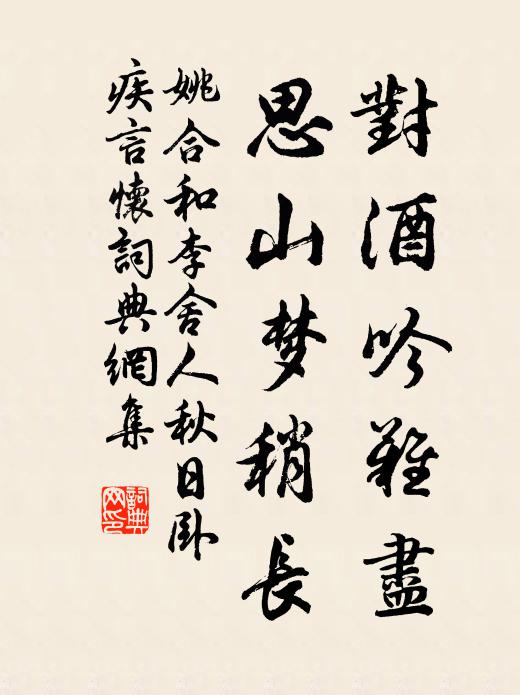 對酒吟難盡
思山梦稍長
姚合和李舍人秋日卧
疾言懷詞典網集
詞典网印